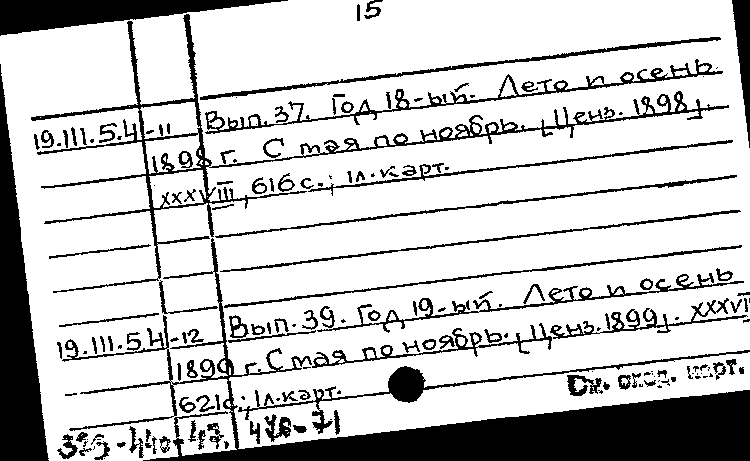 15
19.III.5.4-11 Вып. 37. Год 18-ый. Лето и осень
1898 г. С мая по ноябрь. [Ценз. 1898].
XXXVIII, 616 с.; 1л. карт.
19.III.5.4-12 Вып. 39. Год 19-ый. Лето и осень
1899 г. С мая по ноябрь. [Ценз. 1899]. XXXVII
621с.; 1л. карт.
См. след. карт.